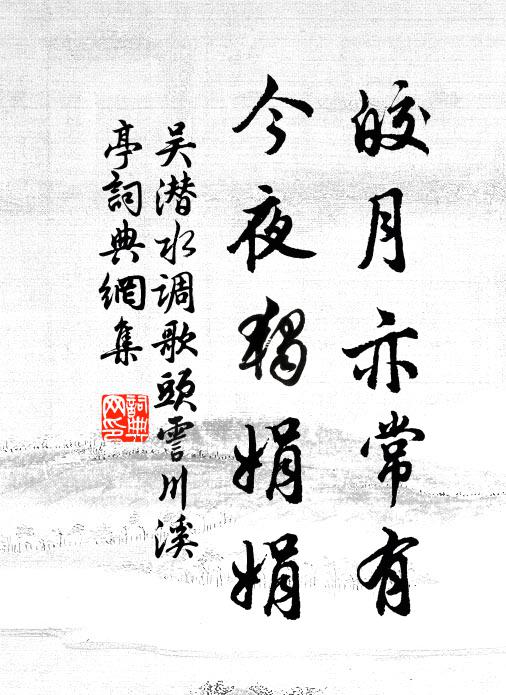 皎月亦常有
今夜獨娟娟
吴潜水调歌頭霅川溪
亭詞典網集
詞典
网印